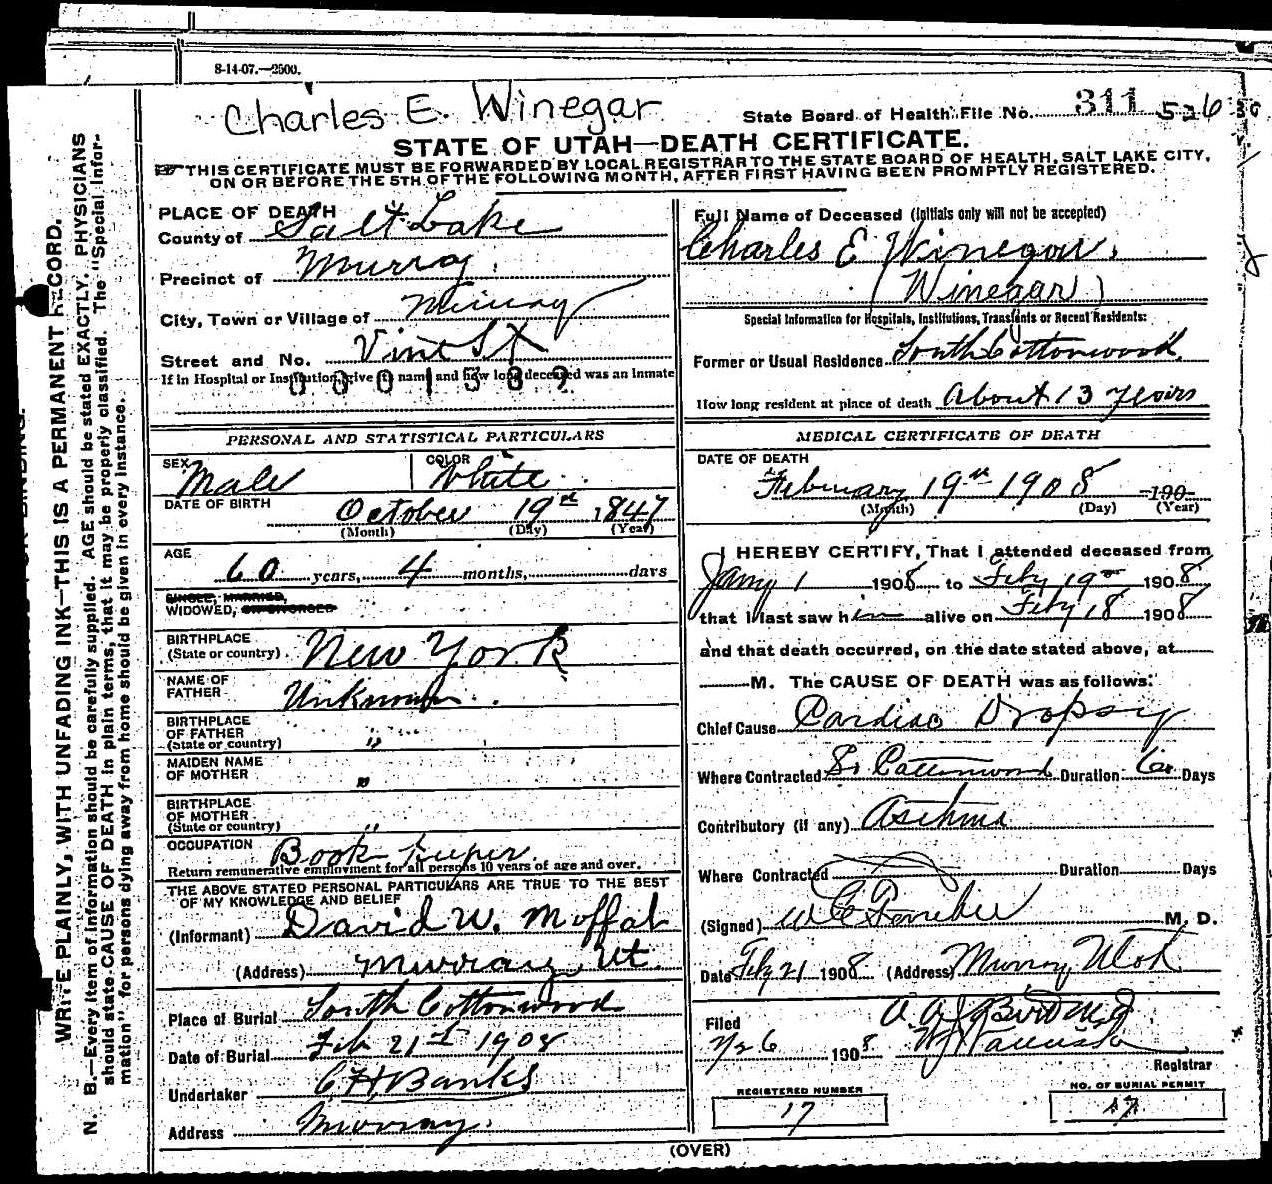 8-14-07.—2500.
Charles E. Winegar
State Board of Health File No. 311 526
STATE OF UTAH—DEATH CERTIFICATE.
THIS CERTIFICATE MUST BE FORWARDED BY LOCAL REGISTRAR TO THE STATE BOARD OF HEALTH, SALT LAKE CITY,
ON OR BEFORE THE 5TH OF THE FOLLOWING MONTH, AFTER FIRST HAVING BEEN PROMPTLY REGISTERED.
WRITE PLAINLY, WITH UNFADING INK—THIS IS A PERMANENT RECORD.
N. B.—Every item of information should be carefully supplied. AGE should be stated EXACTLY. PHYSICIANS
should state CAUSE OF DEATH in plain terms, that it may be properly classified. The "Special Infor-
mation" for persons dying away from home should be given in every instance.
PLACE OF DEATH
County of Salt Lake
Precinct of Murray.
City, Town or Village of Murray
Street and No. Vine St
If in Hospital or Institution, give its name and how long deceased was an inmate
0001589
PERSONAL AND STATISTICAL PARTICULARS
SEX Male COLOR White
DATE OF BIRTH October 19th 1847
(Month) (Day) (Year)
AGE 60 years, 4 months, days
SINGLE, MARRIED,
WIDOWED, OR DIVORCED
BIRTHPLACE
(State or country) New York
NAME OF
FATHER Unknown
BIRTHPLACE
OF FATHER
(State or country) "
MAIDEN NAME
OF MOTHER "
BIRTHPLACE
OF MOTHER
(State or country) "
OCCUPATION Book Keeper
Return remunerative employment for all persons 10 years of age and over.
THE ABOVE STATED PERSONAL PARTICULARS ARE TRUE TO THE BEST
OF MY KNOWLEDGE AND BELIEF
(Informant) David W. Moffat
(Address) Murray, Ut.
Place of Burial South Cottonwood
Date of Burial Feb 21st 1908
Undertaker C. H. Banks
Address Murray.
Full Name of Deceased (Initials only will not be accepted)
Charles E Winegar.
(Winegar)
Special Information for Hospitals, Institutions, Transients or Recent Residents:
Former or Usual Residence South Cottonwood.
How long resident at place of death About 13 years
MEDICAL CERTIFICATE OF DEATH
DATE OF DEATH
February 19th 1908 190
(Month) (Day) (Year)
I HEREBY CERTIFY, That I attended deceased from
Jany 1 1908 to Feby 19 1908
that I last saw him alive on Feby 18 1908
and that death occurred, on the date stated above, at
M. The CAUSE OF DEATH was as follows:
Chief Cause Cardiac Dropsy
Where Contracted So Cottonwood Duration 60 Days
Contributory (if any) Asthma
Where Contracted Duration Days
(Signed) M. D.
Date Feby 21 1908 (Address) Murray, Utah
Filed
2/26 1908
Registrar
REGISTERED NUMBER
17
NO. OF BURIAL PERMIT
17
(OVER)